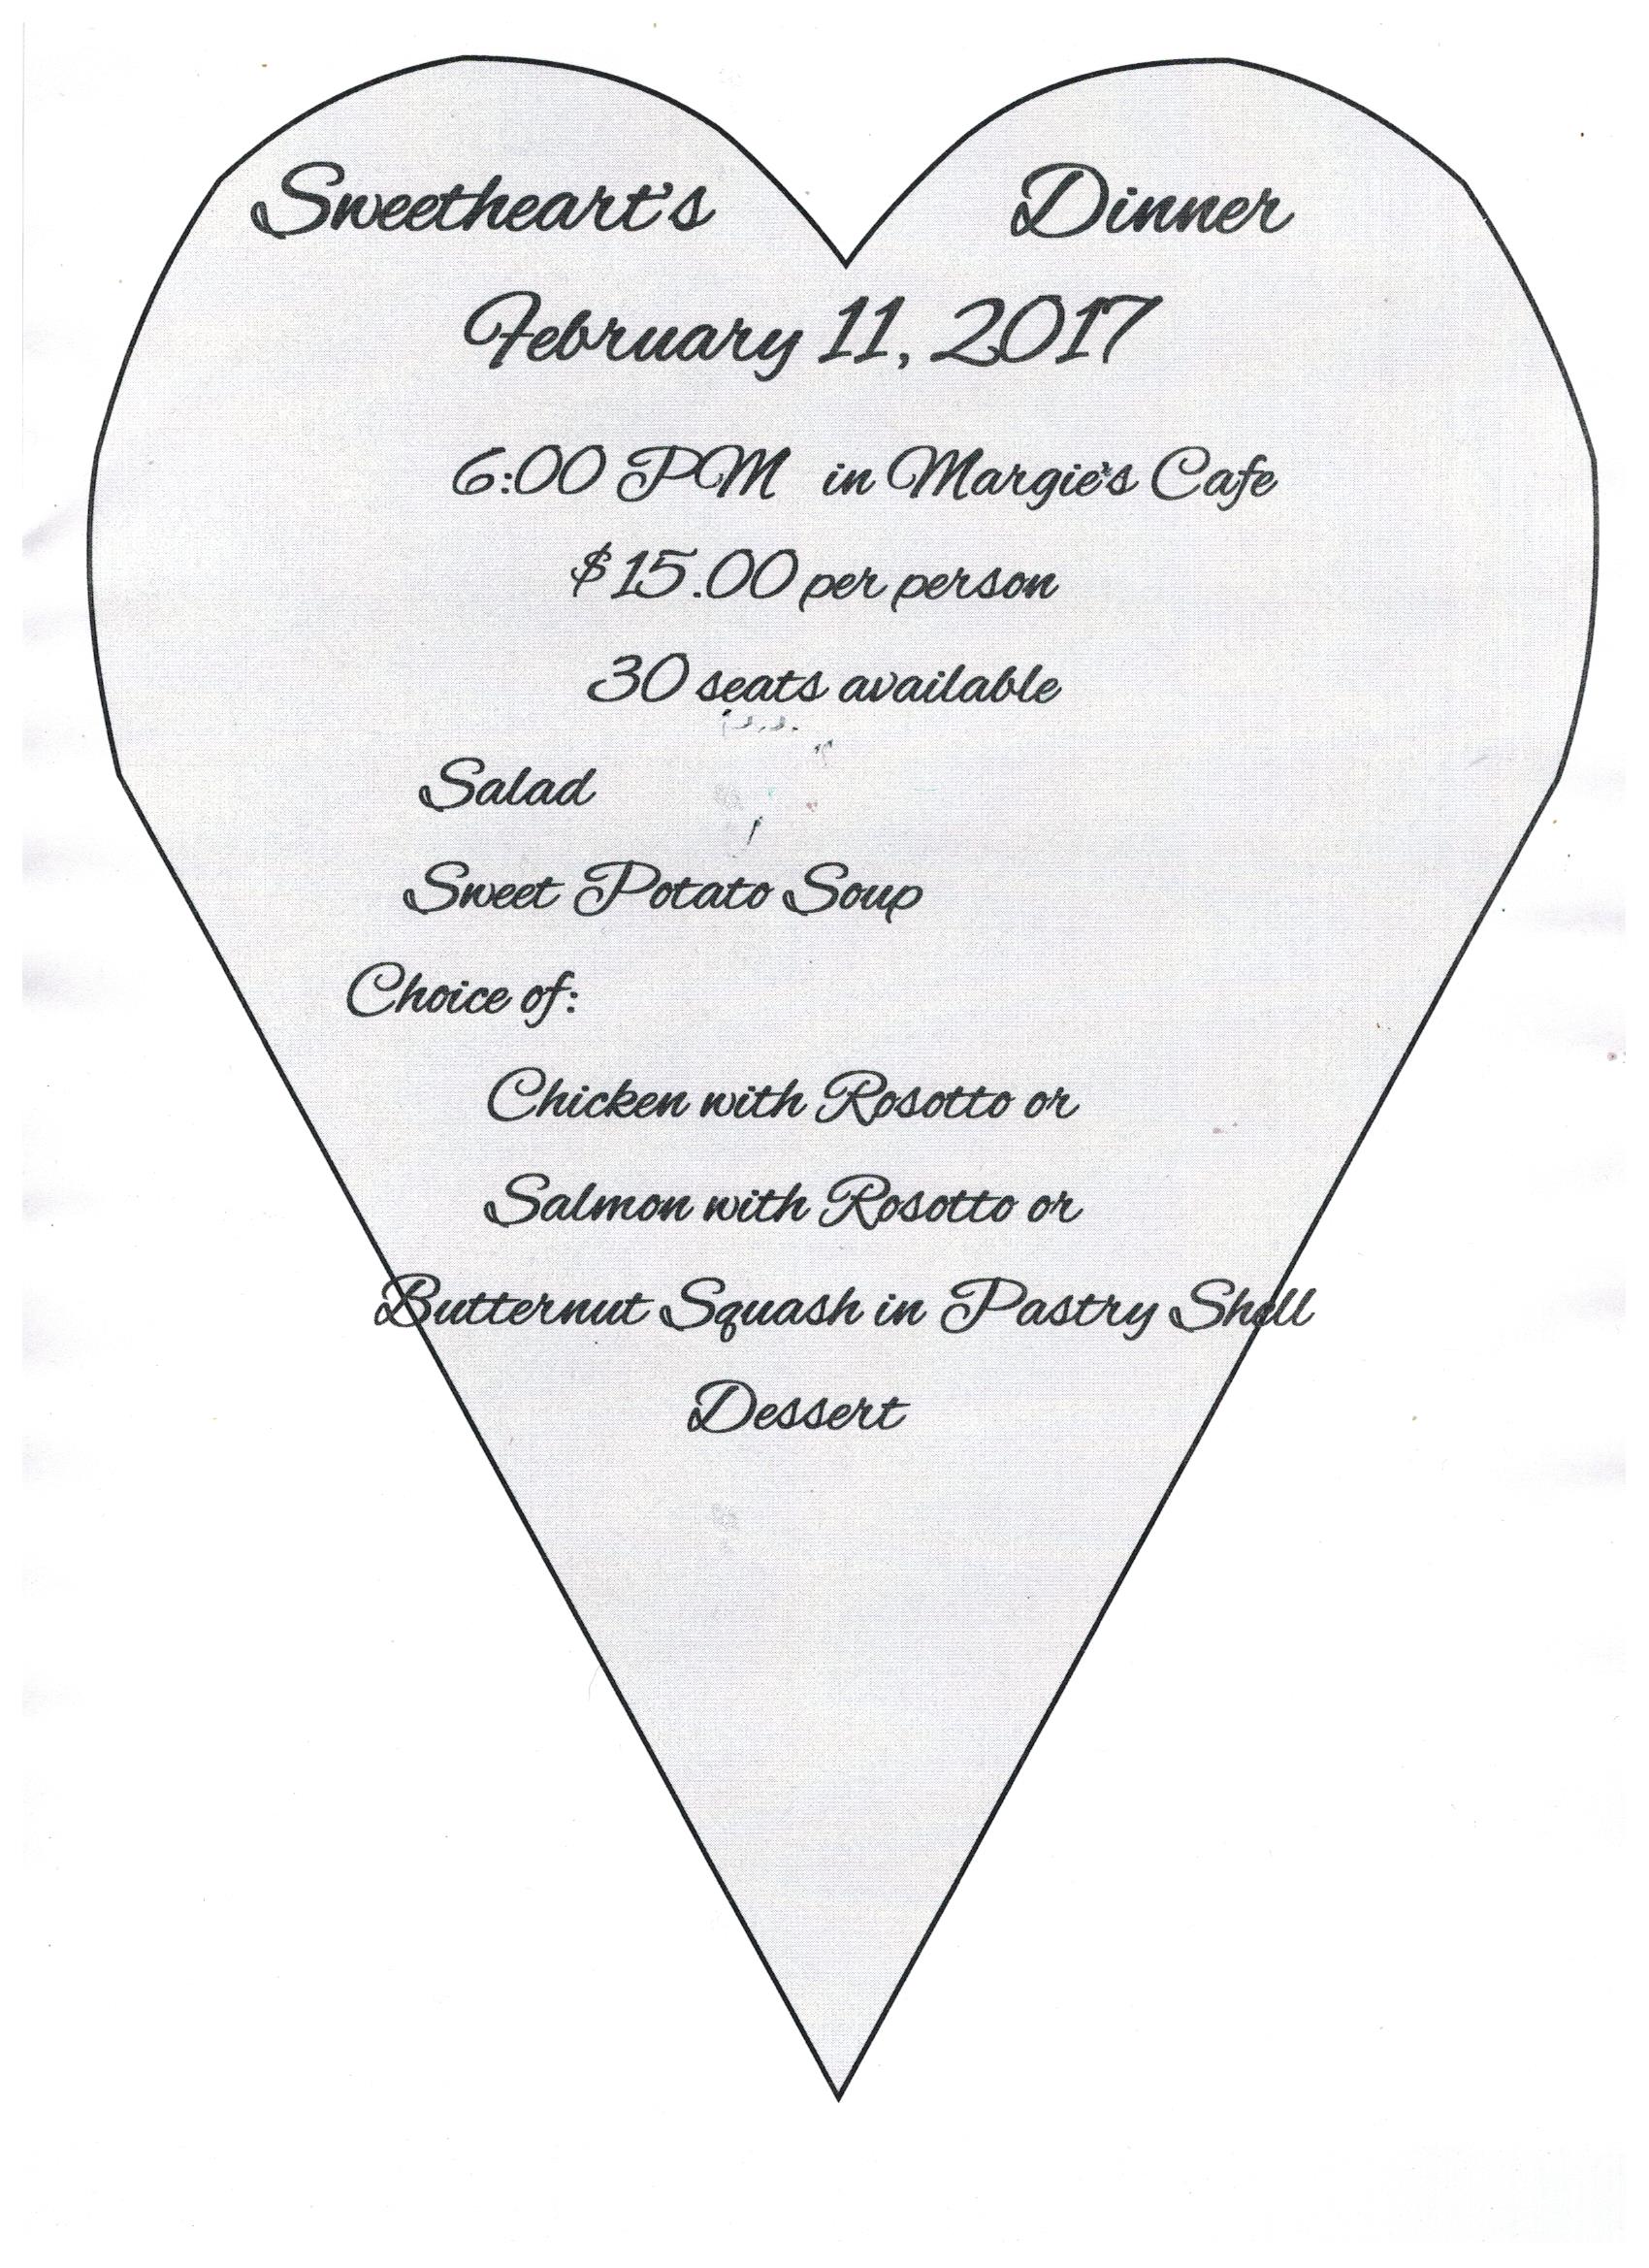 Sweetheart's Dinner
February 11, 2017
6:00 PM in Margie's Cafe
$15.00 per person
30 seats available
Salad
Sweet Potato Soup
Choice of:
Chicken with Rosotto or
Salmon with Rosotto or
Butternut Squash in Pastry Shell
Dessert